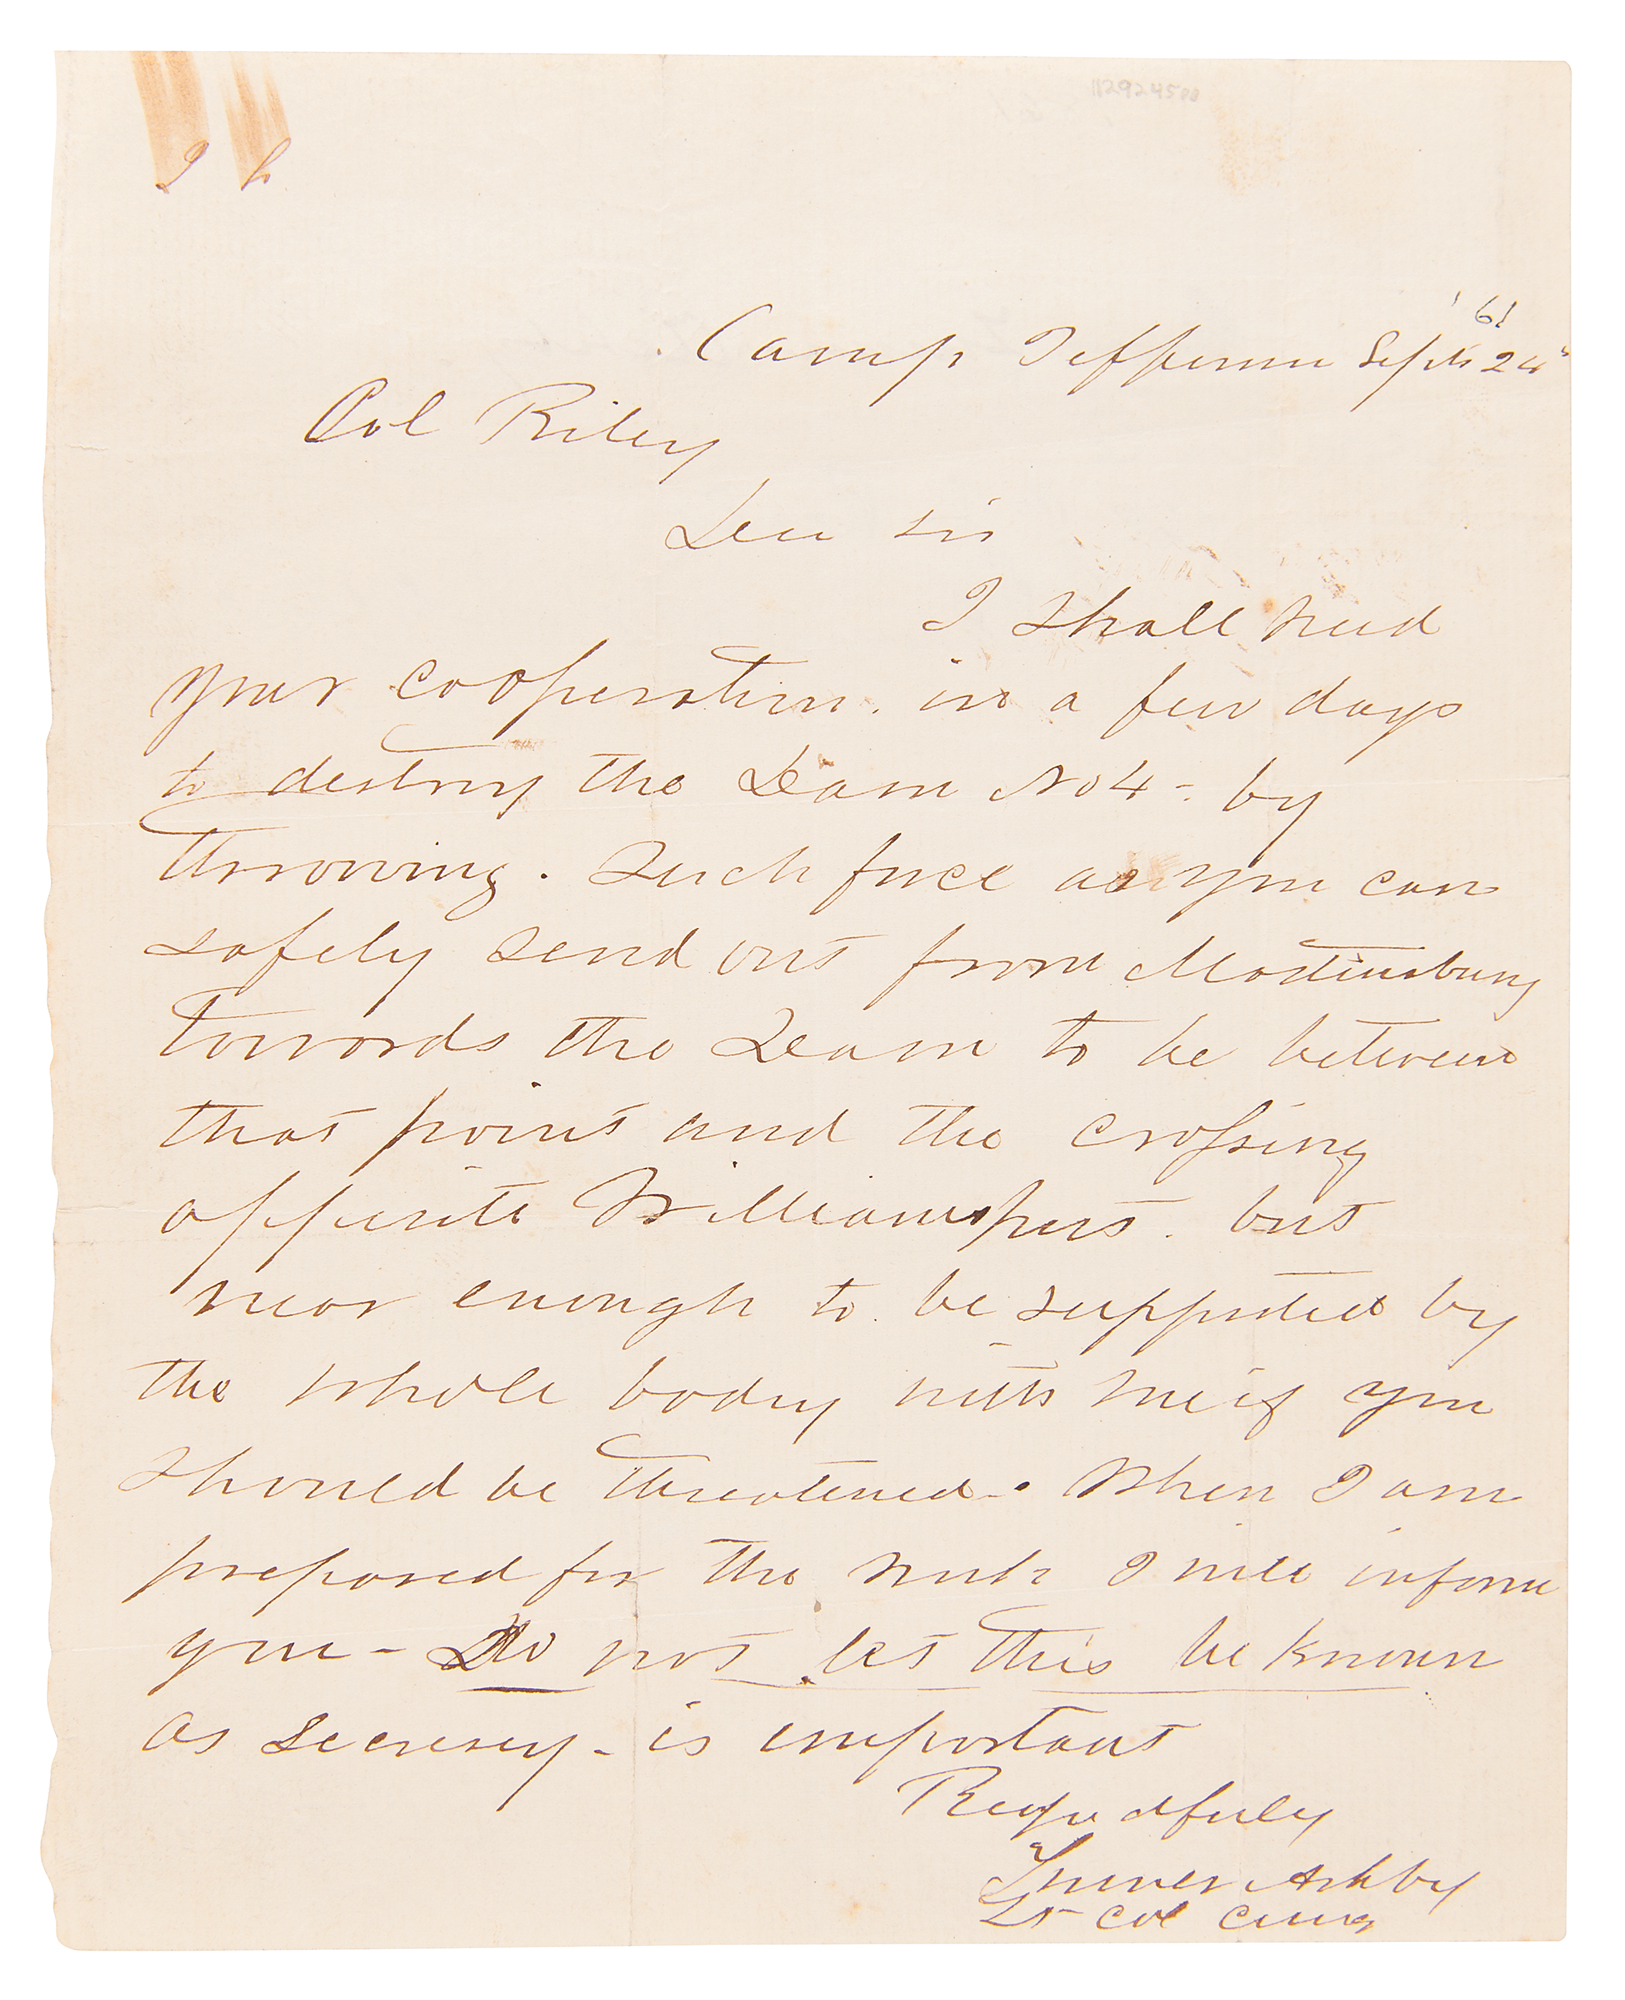 112924500
'61
Camp Jefferson Sept 24
Col Riley
Dear sir
I shall need
your cooperation. in a few days
to destroy the Dam No 4 - by
throwing. Such force as you can
safely send out from Martinsburg
towards the Dam to be between
that point and the crossing
opposite Williamsport. but
near enough to be supported by
the whole body with me if you
should be threatened. When I am
prepared for the work I will inform
you - Do not let this be known
as secresy - is important
Respectfully
Turner Ashby
Lt Col Comg